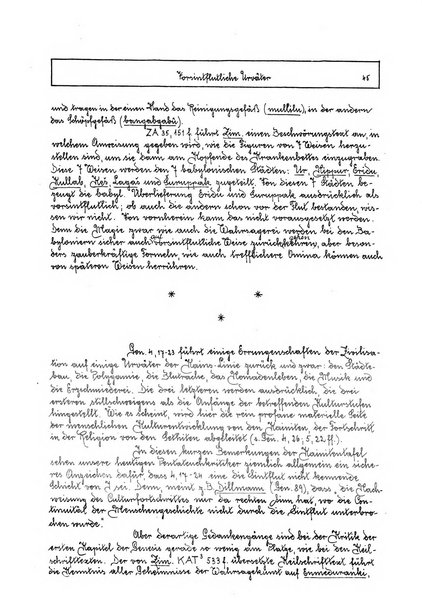 Vorsintflutliche Urväter 45
und tragen in der einen Hand das Reinigungsgefäß (mullilu), in der andern
das Schöpfgefäß (bangabgabû).
ZA 35, 151 f. führt Zim. einen Beschwörungstext an, in
welchem Anweisung gegeben wird, wie die Figuren von 7 Weisen herzu-
stellen sind, um sie dann am Kopfende des Krankenbettes einzugraben.
Diese 7 Weisen werden den 7 babylonischen Städten: Ur, Nippur, Eridu,
Kullab, Keš, Lagaš und Šuruppak zugeteilt. Von diesen 7 Städten be-
zeugt die babyl. Überlieferung Eridu und Šuruppak ausdrücklich als
vorsintflutlich; ob auch die andern schon vor der Flut bestanden, wis-
sen wir nicht. Von vornherein kann das nicht vorausgesetzt werden.
Denn die Magie zwar wie auch die Wahrsagerei werden bei den Ba-
byloniern sicher auch schon auf vorsintflutliche Weise zurückgehen, aber beson-
ders zauberkräftige Formeln, wie auch treffsichere Omina können auch
von spätren Weisen herrühren.
* *
*
Gen. 4, 17-23 führt einige Errungenschaften der Zivilisa-
tion auf einige Urväter der Kains-Linie zurück und zwar: den Städte-
bau, die Polygamie, die Blutrache, das Nomadenleben, die Musik und
die Erzschmiederei. Die drei letzteren werden ausdrücklich, die drei
ersteren stillschweigens als die Anfänge der betreffenden Kulturstufen
hingestellt. Wie es scheint, wird hier die rein profane materielle Seite
der menschlichen Kulturentwicklung von den Kainiten, der Fortschritt
in der Religion von den Sethiten abgeleitet (s. Gen. 4, 26; 5, 22 ff.).
In diesen kurzen Bemerkungen der Kainitentafel
sehen unsere heutigen Pentateuchkritiker ziemlich allgemein ein siche-
res Anzeichen dafür, dass 4, 17-24 eine die Sintflut nicht kennende
Schicht von J sei. Denn, meint z.B. Dillmann (Gen. 89), dass „die Nach-
weisung des Culturfortschrittes nur da rechten Sinn hat, wo die Con-
tinuität der Menschengeschichte nicht durch die Sintflut unterbro-
chen wurde.“
Aber derartige Gedankengänge sind bei der Kritik der
ersten Kapitel der Genesis gerade so wenig am Platze, wie bei den Keil-
schrifttexten. Der von Zim. KAT³ 533 f. übersetzte Keilschrifttext führt
die Kenntnis aller Geheimnisse der Wahrsagekunst auf Enmeduranki,